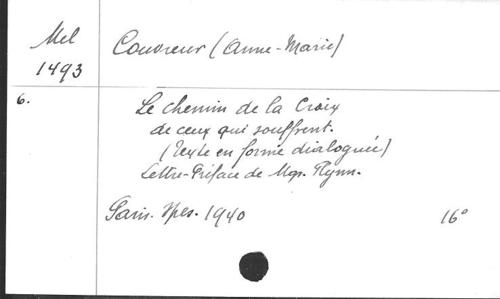 Mel
1493
Couvreur (Anne-Marie)
6.
Le Chemin de la Croix
de ceux qui souffrent.
(Texte en forme dialoguée)
Lettre-Préface de Mgr. Flynn.
Paris. Spes. 1940
16°